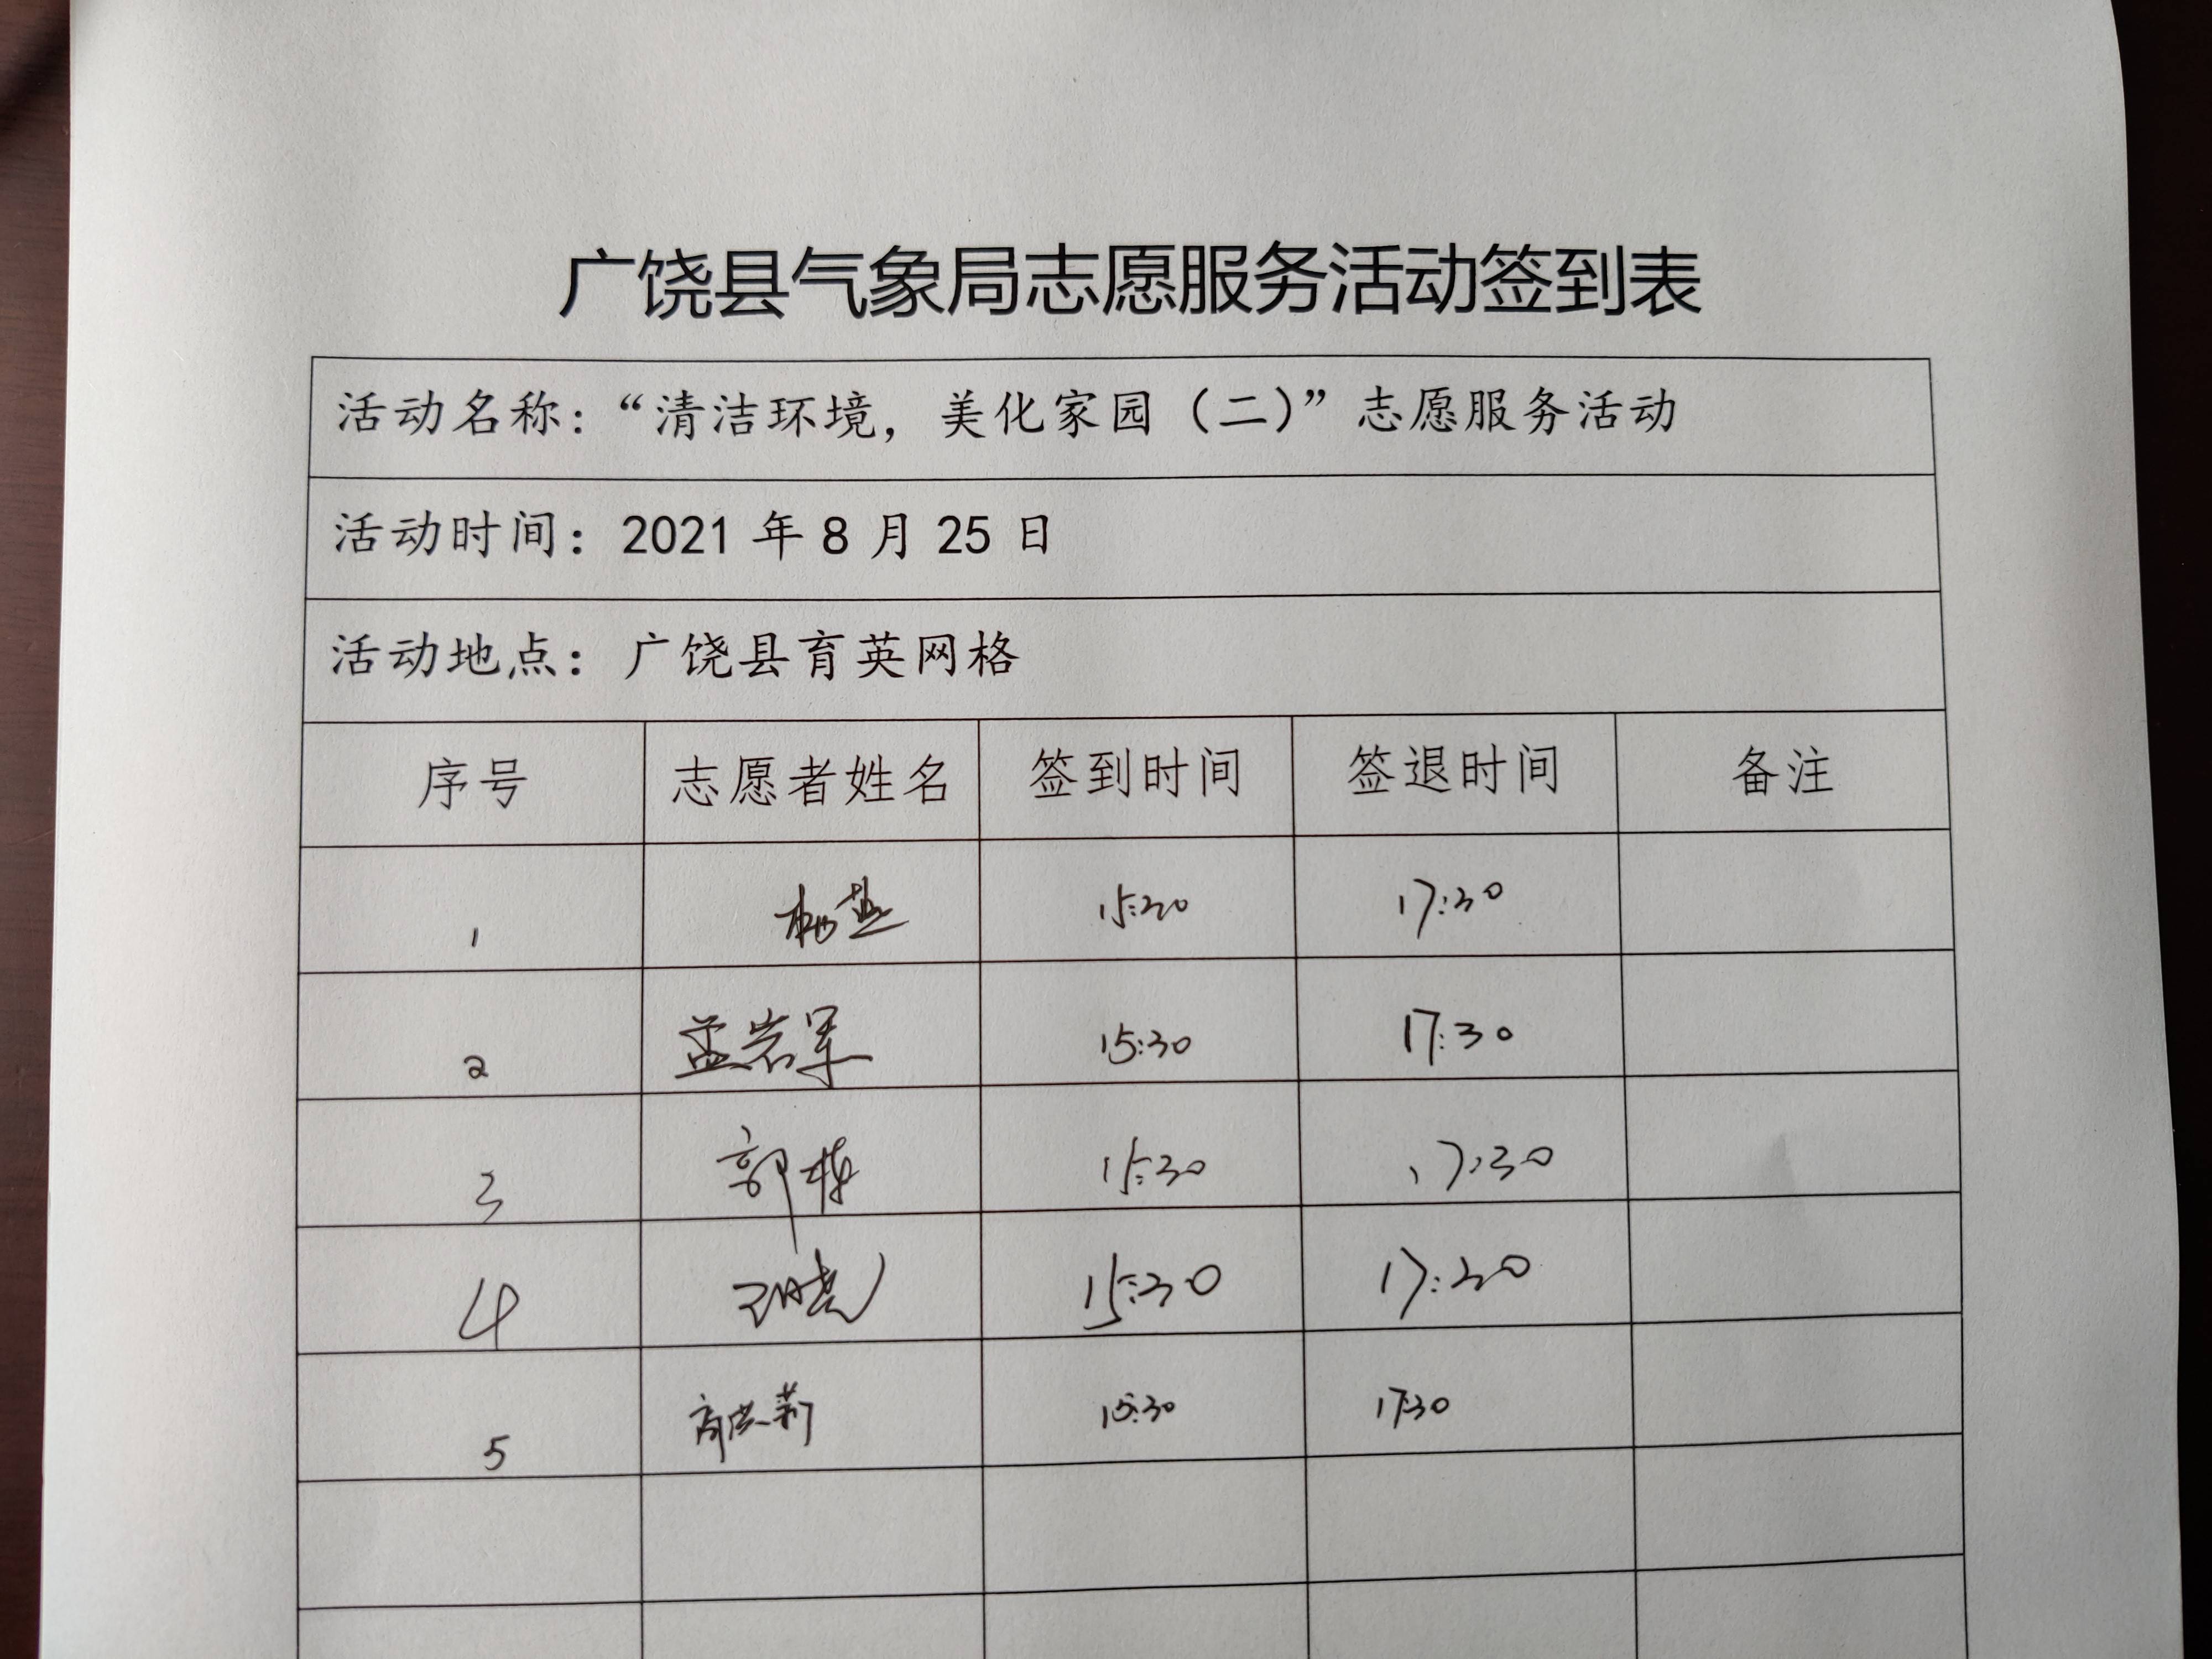 广饶县气象局志愿服务活动签到表
活动名称：“清洁环境，美化家园（二）”志愿服务活动
活动时间：2021 年 8 月 25 日
活动地点：广饶县育英网格
序号 志愿者姓名 签到时间 签退时间 备注
1 杨燕 15:30 17:30
2 孟岩军 15:30 17:30
3 郭栋 15:30 17:30
4 15:30 17:30
5 15:30 17:30